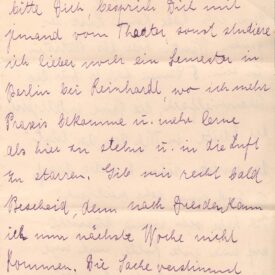 bitte Dich, besprich Dich mit
jemand vom Theater, sonst studiere
ich lieber noch ein Semester in
Berlin bei Reinhardt, wo ich mehr
Praxis bekomme u. mehr lerne
als hier zu stehn u. in die Luft
zu starren. Gib mir recht bald
Bescheid, denn nach Dresden kann
ich nun nächste Woche nicht
kommen. Die Sache verstimmt